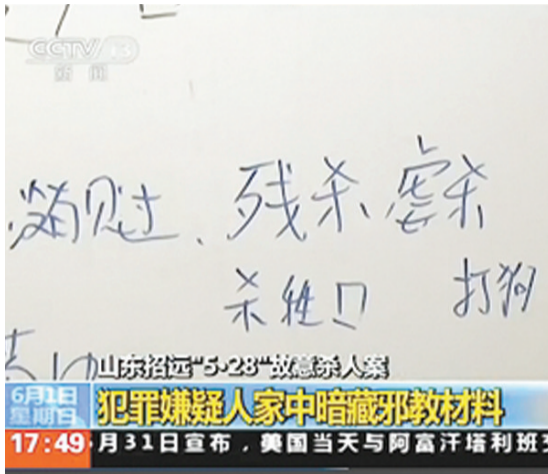 CCTV 13
新闻
没有见过、残杀 虐杀
杀牲口 打狗
山东招远"5·28"故意杀人案
6月1日
星期日
犯罪嫌疑人家中暗藏邪教材料
17:49
月31日宣布，美国当天与阿富汗塔利班交